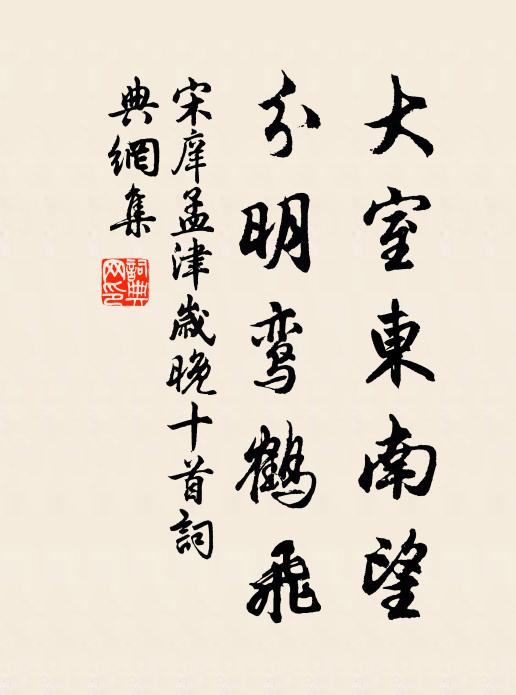 大室東南望
分明鸾鶴飛
宋庠孟津歲晚十首詞
典網集
詞典網印